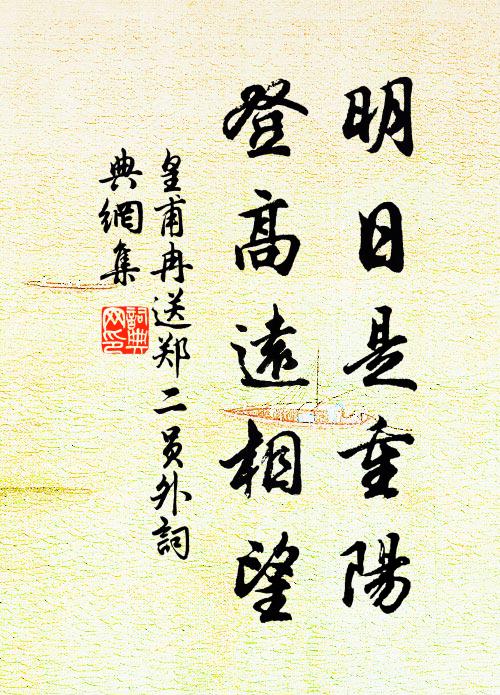 明日是重陽
登高遠相望
皇甫冉送郑二员外詞
典網集
詞典
网印